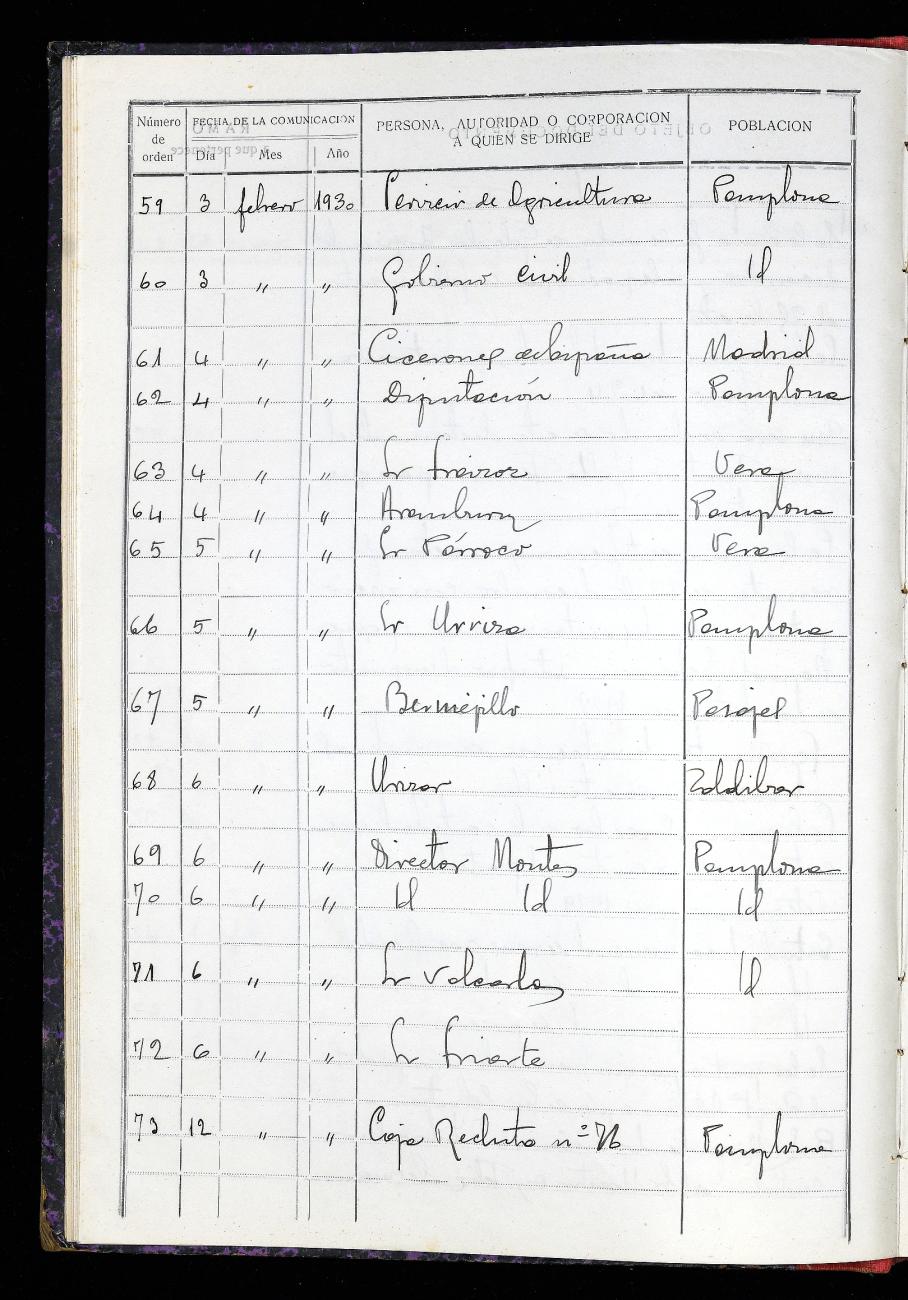 Número de orden FECHA DE LA COMUNICACIÓN Día Mes Año PERSONA, AUTORIDAD O CORPORACION A QUIEN SE DIRIGE POBLACION
59 3 febrero 1930 de Agricultura Pamplona
60 3 " " Gobierno Civil Id
61 4 " " Cicerones Madrid
62 4 " " Diputación Pamplona
63 4 " " Sr Vera
64 4 " " Aramburu Pamplona
65 5 " " Sr Párroco Vera
66 5 " " Sr Urriza Pamplona
67 5 " " Bermejillo Pasajes
68 6 " " Urizar Zaldibar
69 6 " " Director Montes Pamplona
70 6 " " Id Id Id
71 6 " " Sr Valcarlos Id
72 6 " " Sr Iriarte
73 12 " " Caja Recluta nº 76 Pamplona